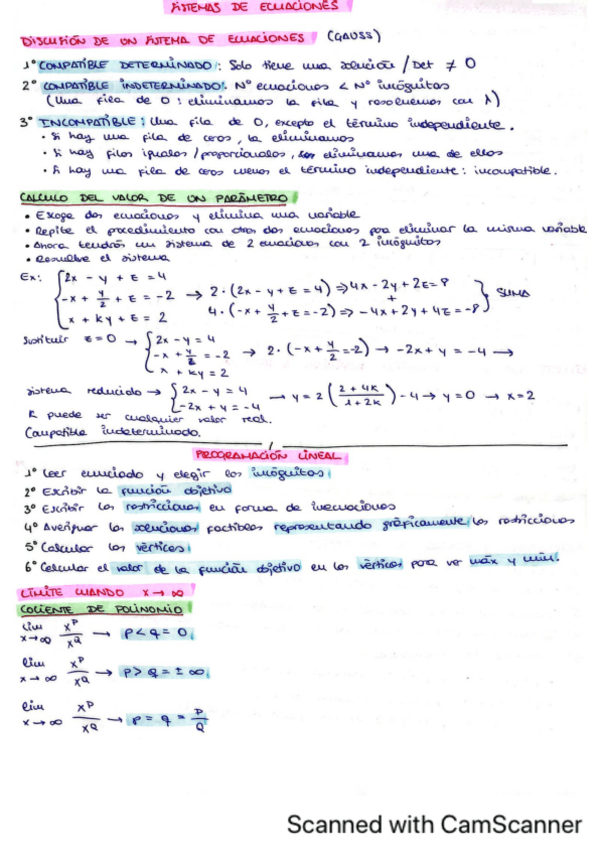 SISTEMAS DE ECUACIONES
DISCUSIÓN DE UN SISTEMA DE ECUACIONES (GAUSS)
1º COMPATIBLE DETERMINADO: Solo tiene una solución / Det ≠ 0
2º COMPATIBLE INDETERMINADO: Nº ecuaciones < Nº incógnitas
(Una fila de 0: eliminamos la fila y resolvemos con λ)
3º INCOMPATIBLE: Una fila de 0, excepto el término independiente.
• Si hay una fila de ceros, la eliminamos
• Si hay filas iguales / proporcionales, eliminamos una de ellas
• Si hay una fila de ceros menos el término independiente: incompatible.
CALCULO DEL VALOR DE UN PARÁMETRO
• Escoge dos ecuaciones y elimina una variable
• Repite el procedimiento con otras dos ecuaciones para eliminar la misma variable
• Ahora tendrás un sistema de 2 ecuaciones con 2 incógnitas
• Resuelve el sistema
Ex: { 2x - y + z = 4
-x + y/2 + z = -2 → 2·(2x - y + z = 4) ⇒ 4x - 2y + 2z = 8
+ } SUMA
x + ky + z = 2 4·(-x + y/2 + z = -2) ⇒ -4x + 2y + 4z = -8
Sustituir z = 0 → { 2x - y = 4
-x + y/2 = -2 → 2·(-x + y/2 = -2) → -2x + y = -4 →
x + ky = 2
sistema reducido → { 2x - y = 4
-2x + y = -4 → y = 2 ( (2 + 4k) / (1 + 2k) ) - 4 → y = 0 → x = 2
K puede ser cualquier valor real.
Compatible indeterminado.
PROGRAMACIÓN LINEAL
1º Leer enunciado y elegir las incógnitas
2º Escribir la función objetivo
3º Escribir las restricciones en forma de inecuaciones
4º Averiguar las soluciones factibles representando gráficamente las restricciones
5º Calcular los vértices
6º Calcular el valor de la función objetivo en los vértices para ver máx y mín.
LÍMITE CUANDO x → ∞
COCIENTE DE POLINOMIO
lim x→∞ x^P / x^Q → p < q = 0
lim x→∞ x^P / x^Q → p > q = ± ∞
lim x→∞ x^P / x^Q → p = q = P/Q
Scanned with CamScanner